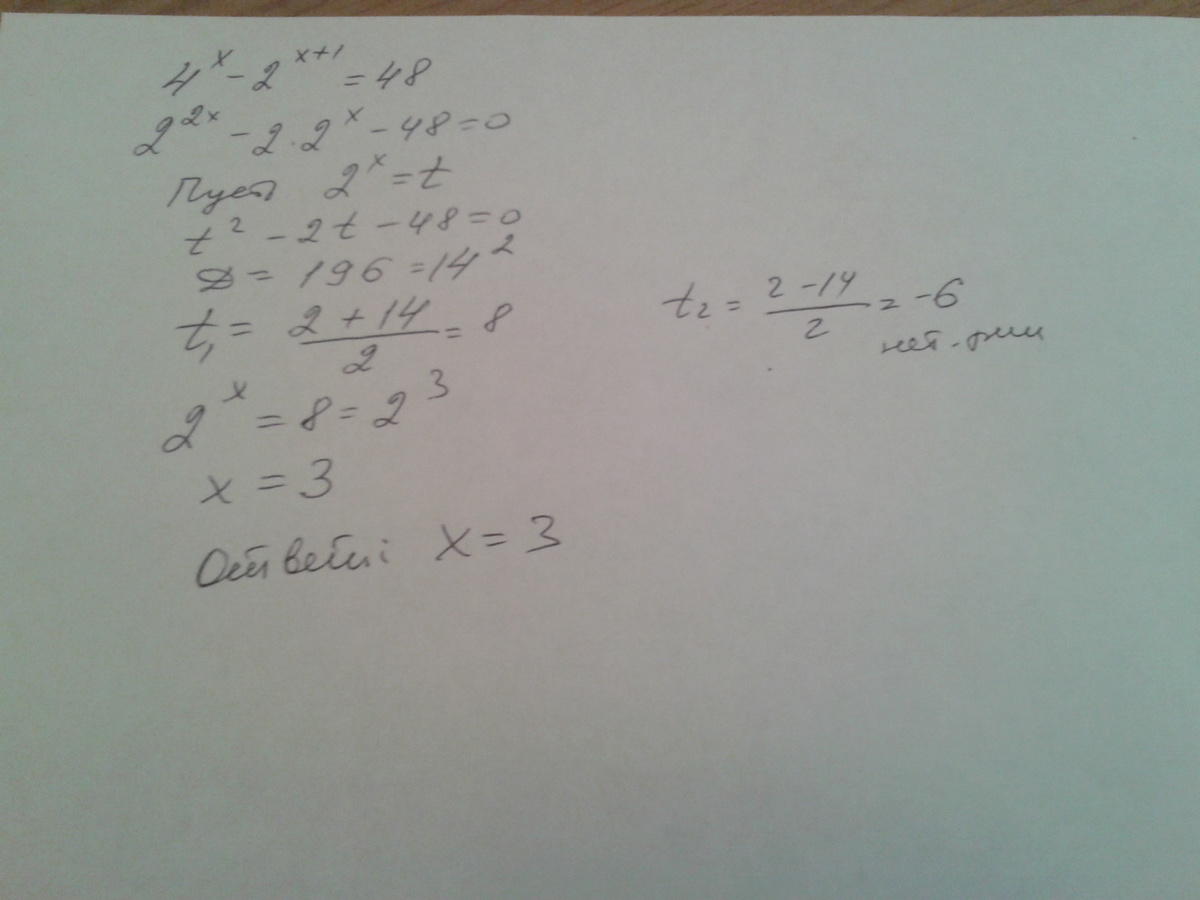 4^x - 2^{x+1} = 48
2^{2x} - 2 · 2^x - 48 = 0
Пусть 2^x = t
t^2 - 2t - 48 = 0
D = 196 = 14^2
t_1 = \frac{2 + 14}{2} = 8
t_2 = \frac{2 - 14}{2} = -6
нет
2^x = 8 = 2^3
x = 3
Ответ: x = 3